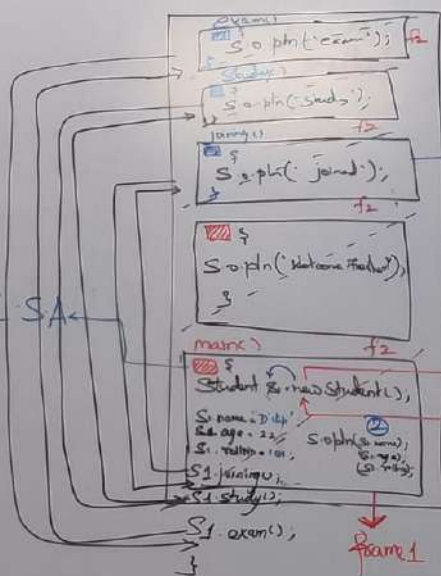 exam()
{
S.o.pln("exam"); f2
study()
{
S.o.pln("study");
} f2
joining()
{
S.o.pln("joined");
} f2
{
S.o.pln("Welcome
}
SA
main() f2
{
Student S1=new Student();
S1.name="Dilip"
S1.age=22
S1.rollno=101
2
S.o.pln(S1.name);
S1.age)
(S1.rollno)
S1.joining();
S1.study();
S1.exam();
}
frame1